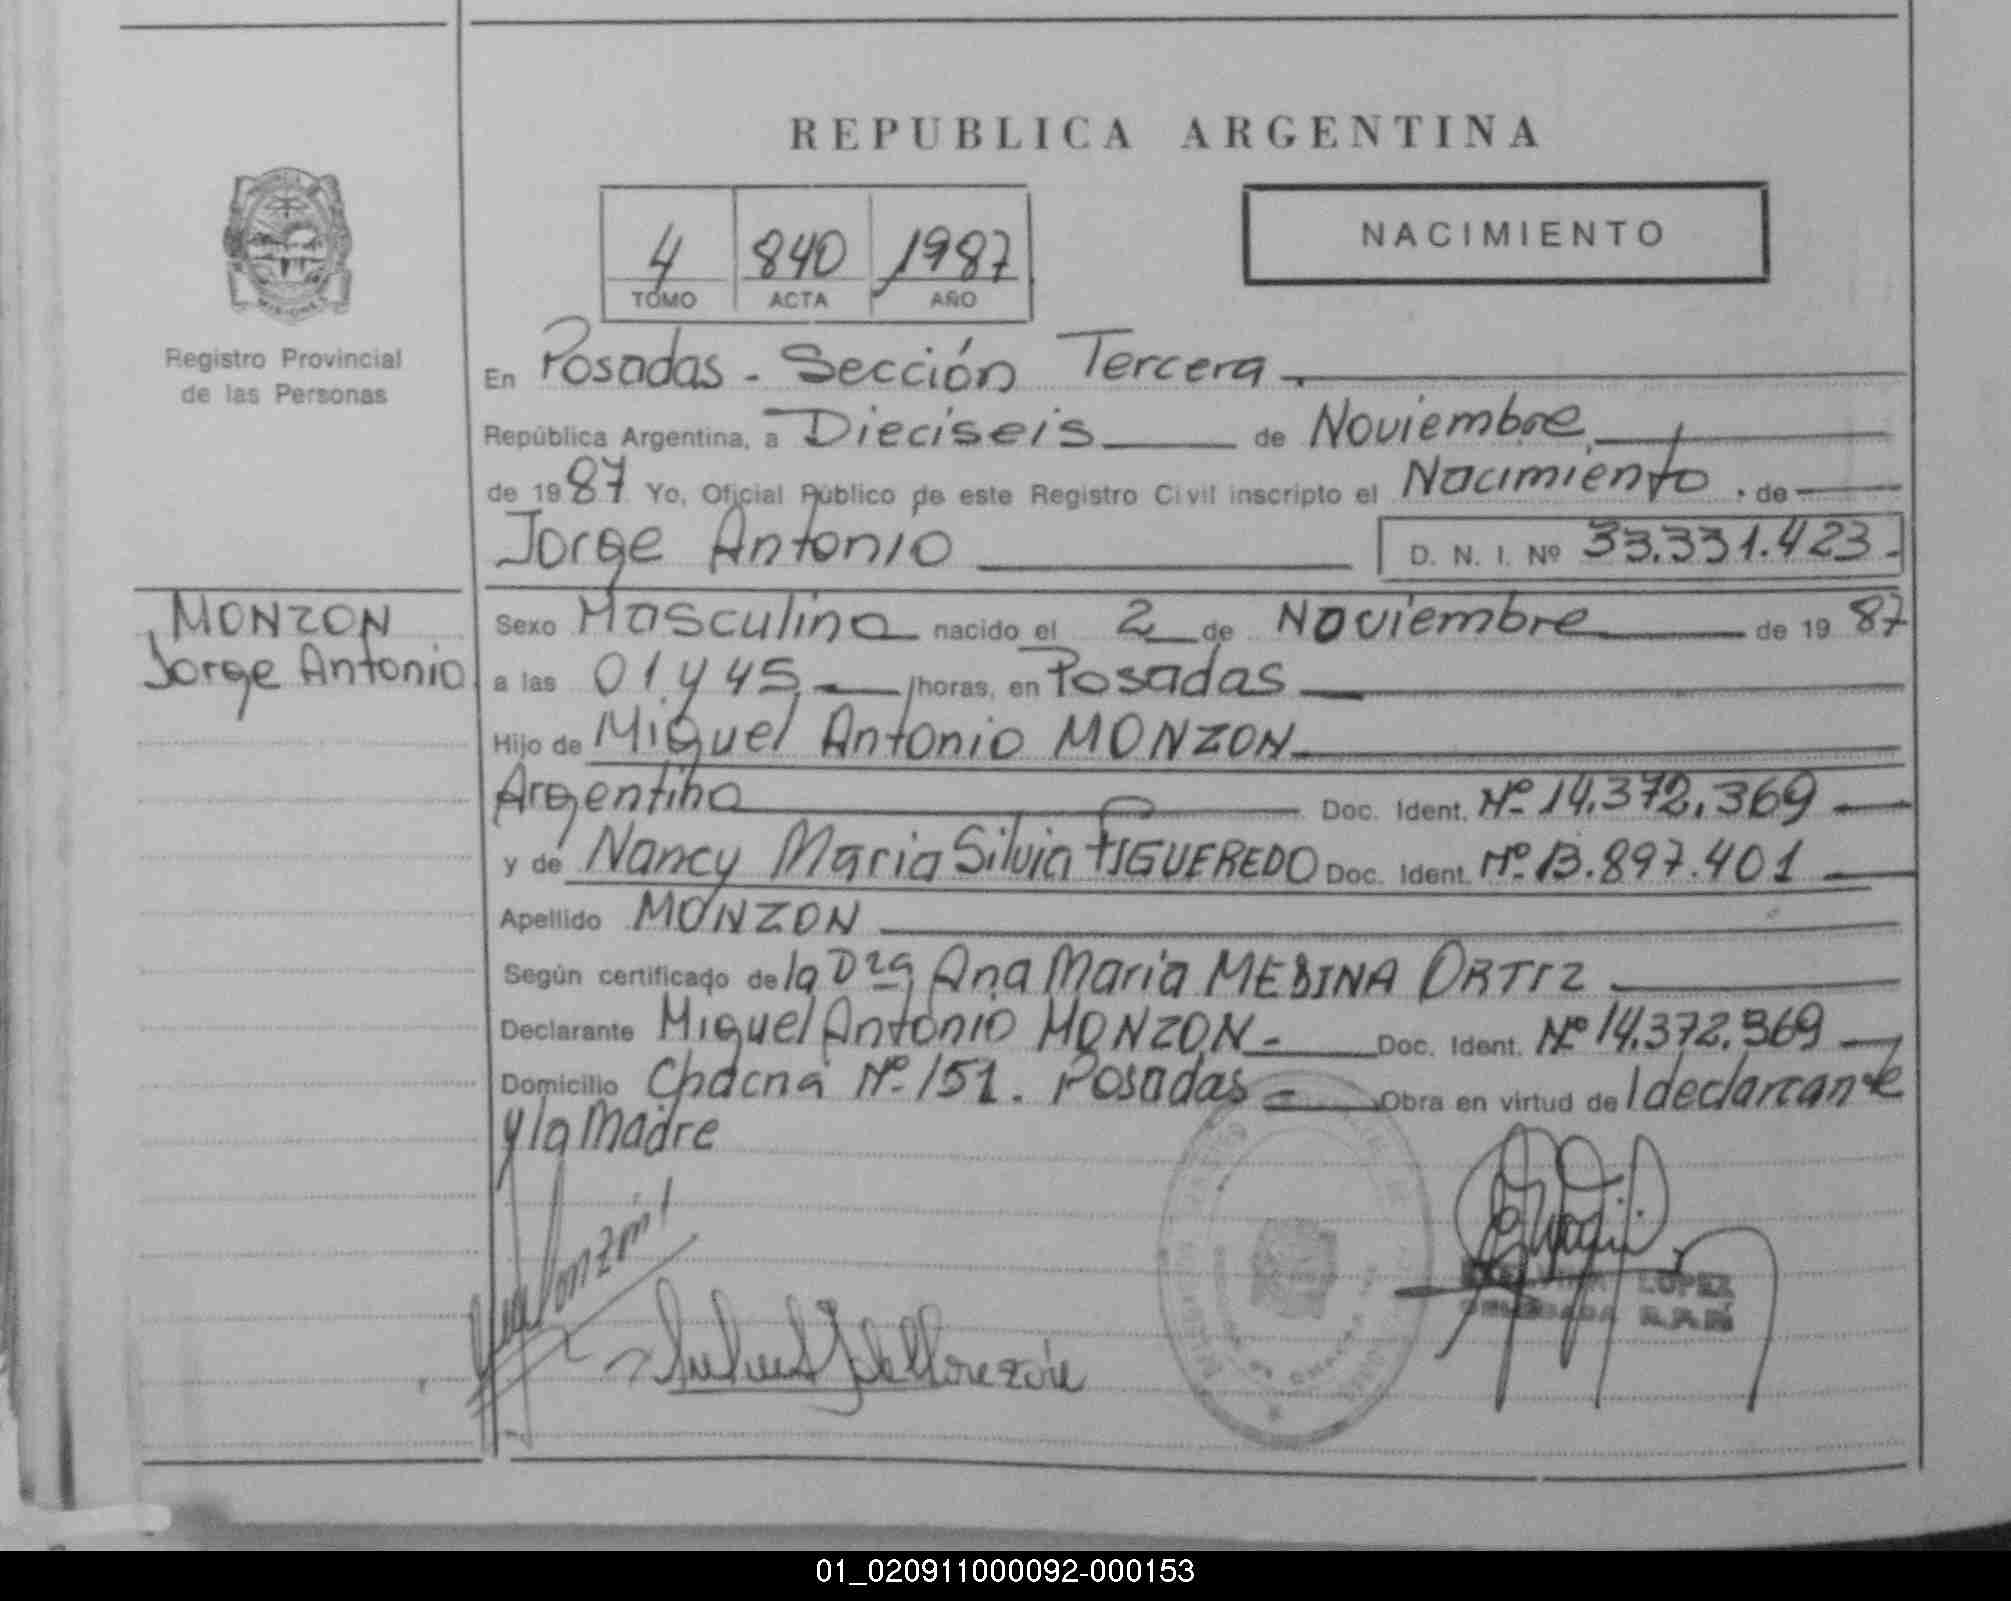 REPUBLICA ARGENTINA
4 840 1987
TOMO ACTA AÑO
NACIMIENTO
MISIONES
Registro Provincial
de las Personas
En Posadas - Sección Tercera.
República Argentina, a Dieciseis de Noviembre
de 1987 Yo, Oficial Público de este Registro Civil inscripto el Nacimiento . de
Jorge Antonio D. N. I. Nº 33.331.423.-
MONZON
Jorge Antonio
Sexo Masculino nacido el 2 de Noviembre de 19 87
a las 01 y 45 horas, en Posadas
Hijo de Miguel Antonio MONZON
Argentino Doc. Ident. Nº 14.372.369
y de Nancy Maria Silvia FIGUEREDO Doc. Ident. Nº 13.897.401
Apellido MONZON
Según certificado de la Dra Ana Maria MEDINA ORTIZ
Declarante Miguel Antonio MONZON - Doc. Ident. Nº 14.372.369
Domicilio Chacra Nº 151. Posadas - Obra en virtud de l declarante
y la Madre
LOPEZ
DELEGADA
01_020911000092-000153